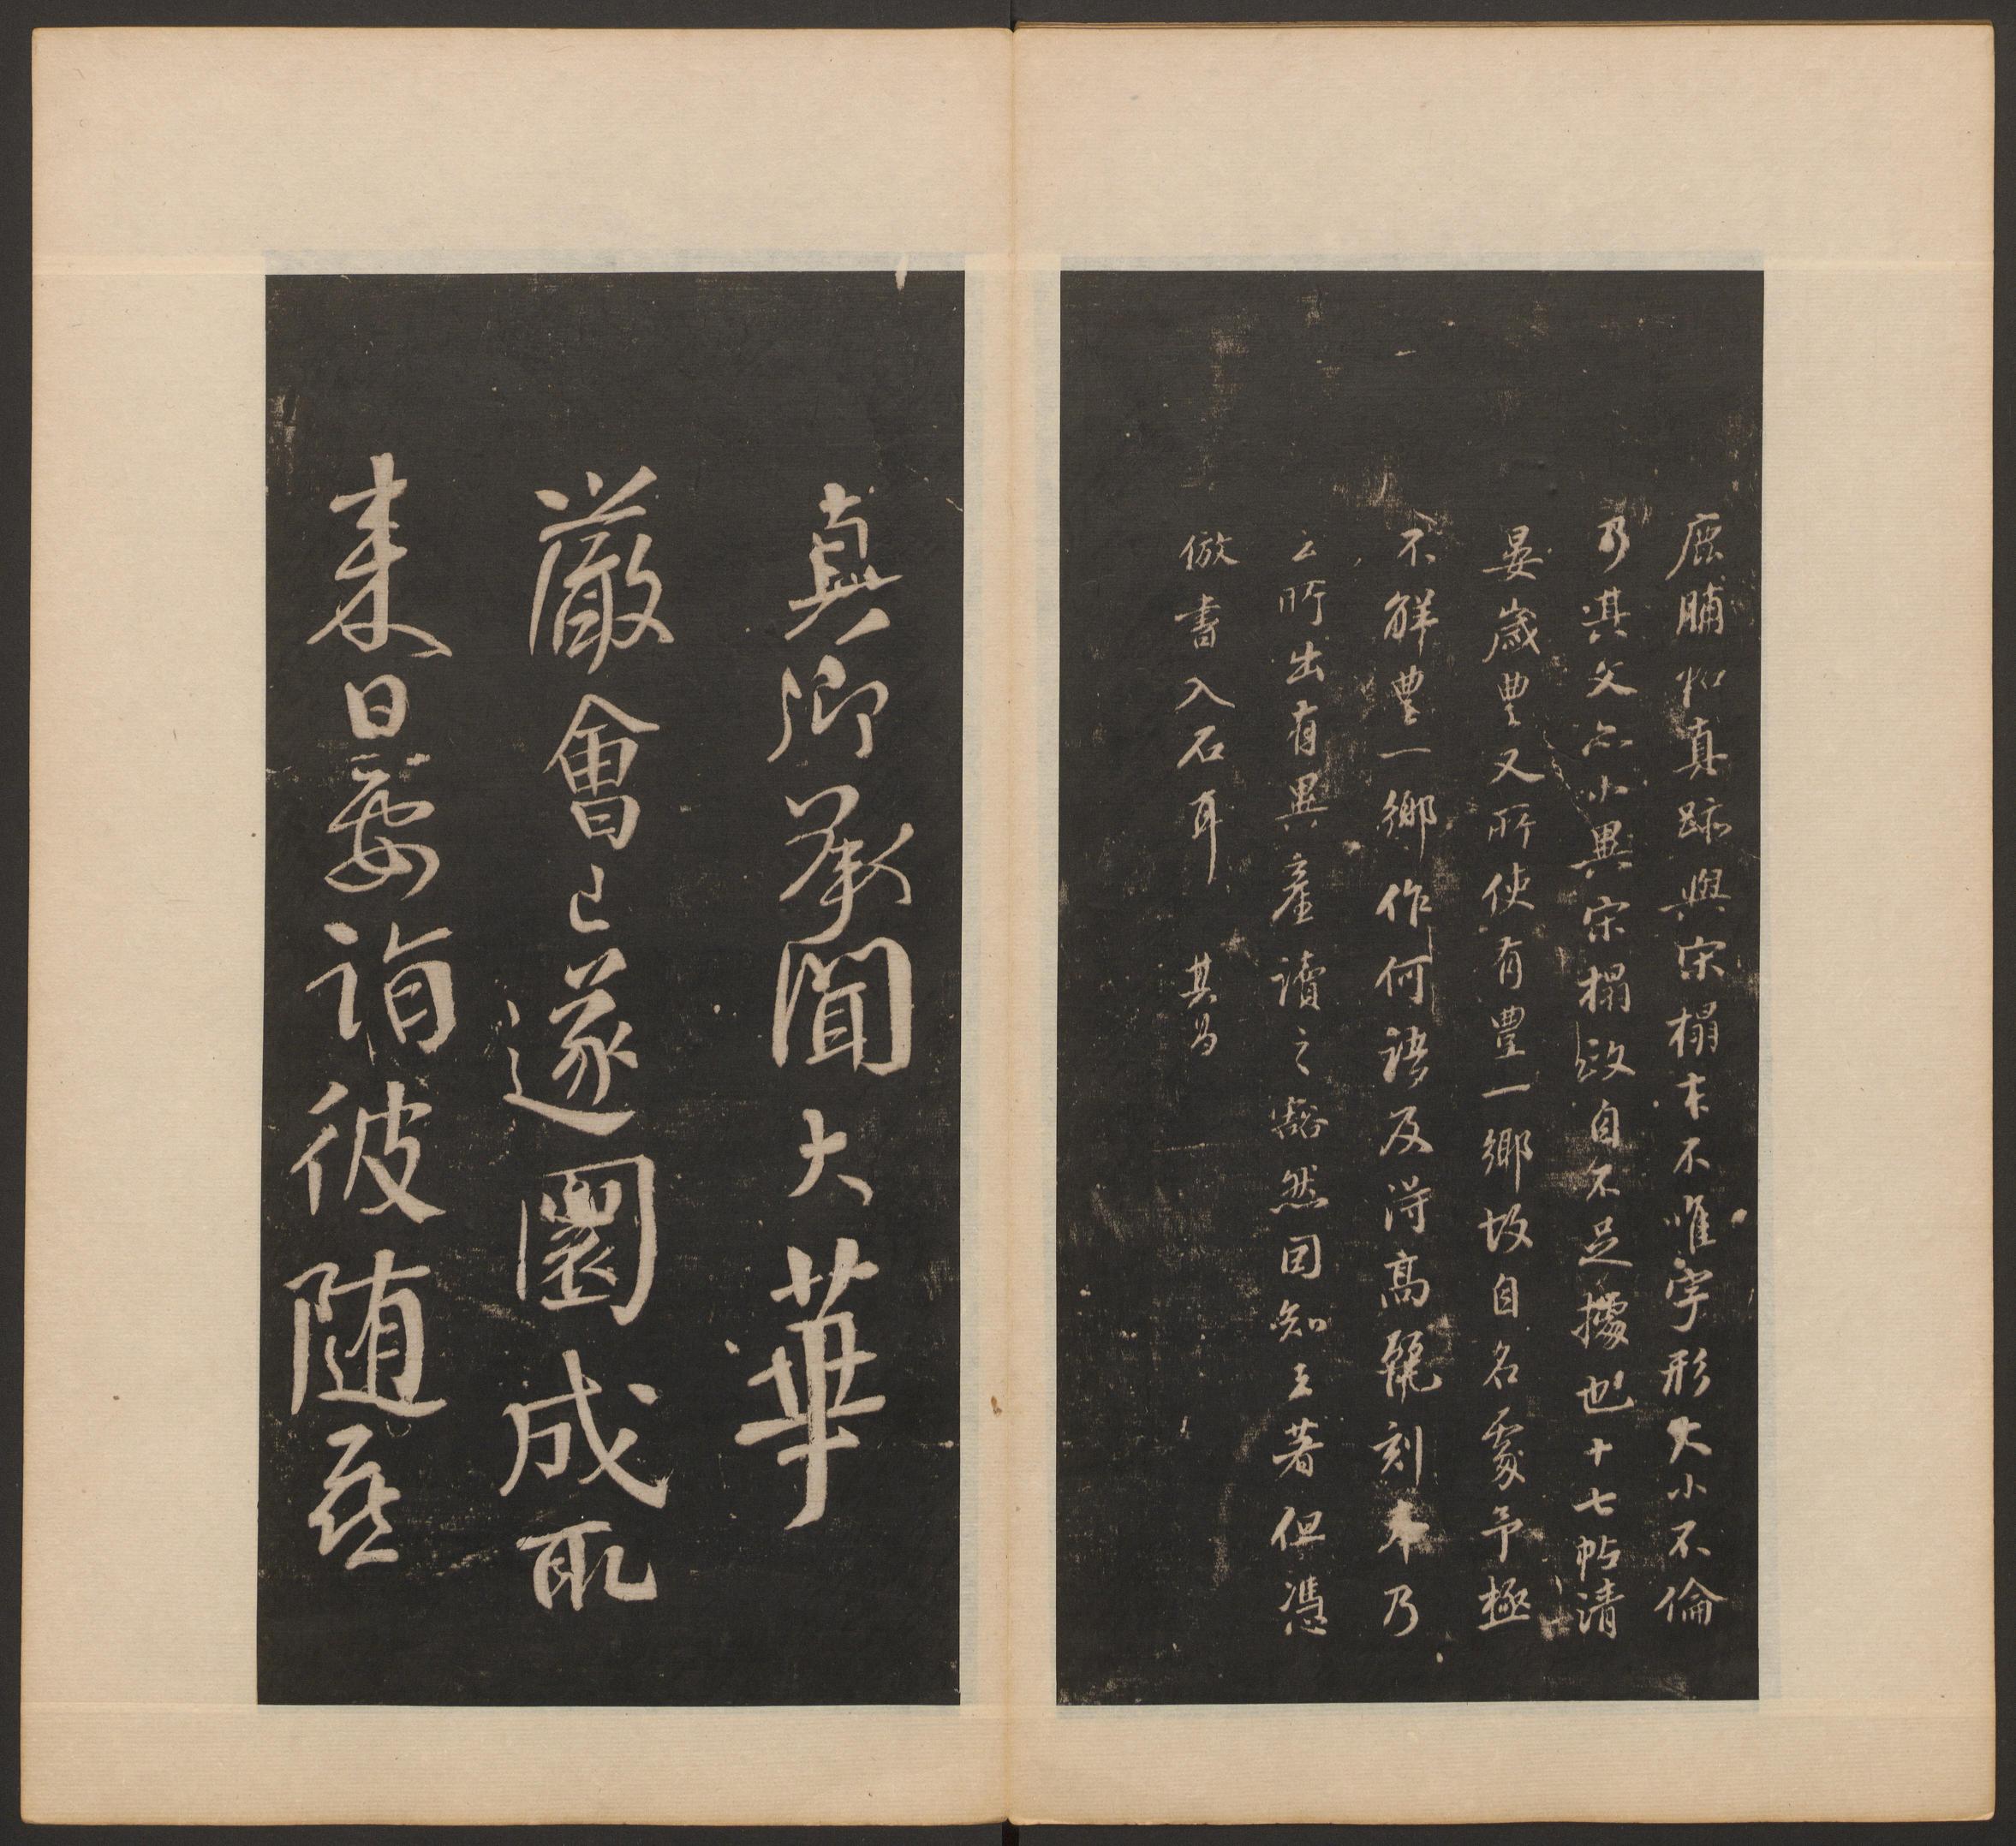 鹿脯帖真跡與宋榻本不唯字形大小不倫
乃其文亦小異宋榻政自不足據也十七帖清
晏歲豊又所使有豊一鄉故自名處予極
不解豊一鄉作何語及得高麗刻本乃
云所出有異產讀之豁然因知王著但憑
倣書入石耳 其昌
真卿承聞大華
嚴會已遂圜成取
来日要詣彼随喜